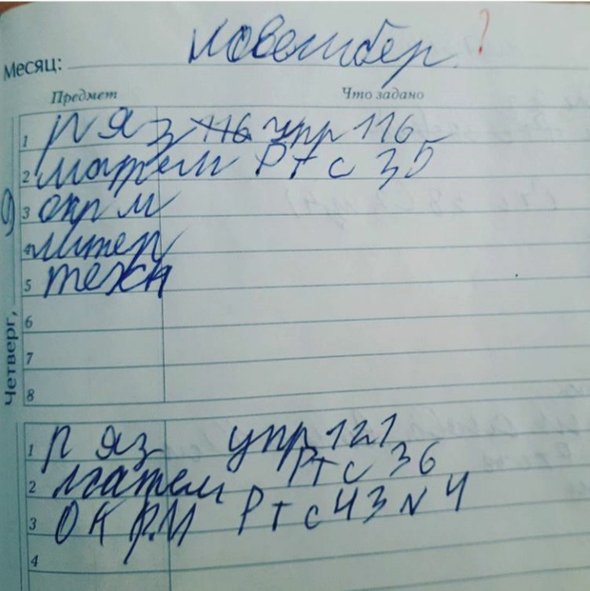 Месяц: Новембер. ?
Предмет Что задано
1 р яз 116 упр 116
2 матем РТ с 35
3 окр м
4 литер
5 техн
6
7
8
Четверг,
1 р яз упр 121
2 матем РТ с 36
3 окр.м РТ с 43 N 4
4